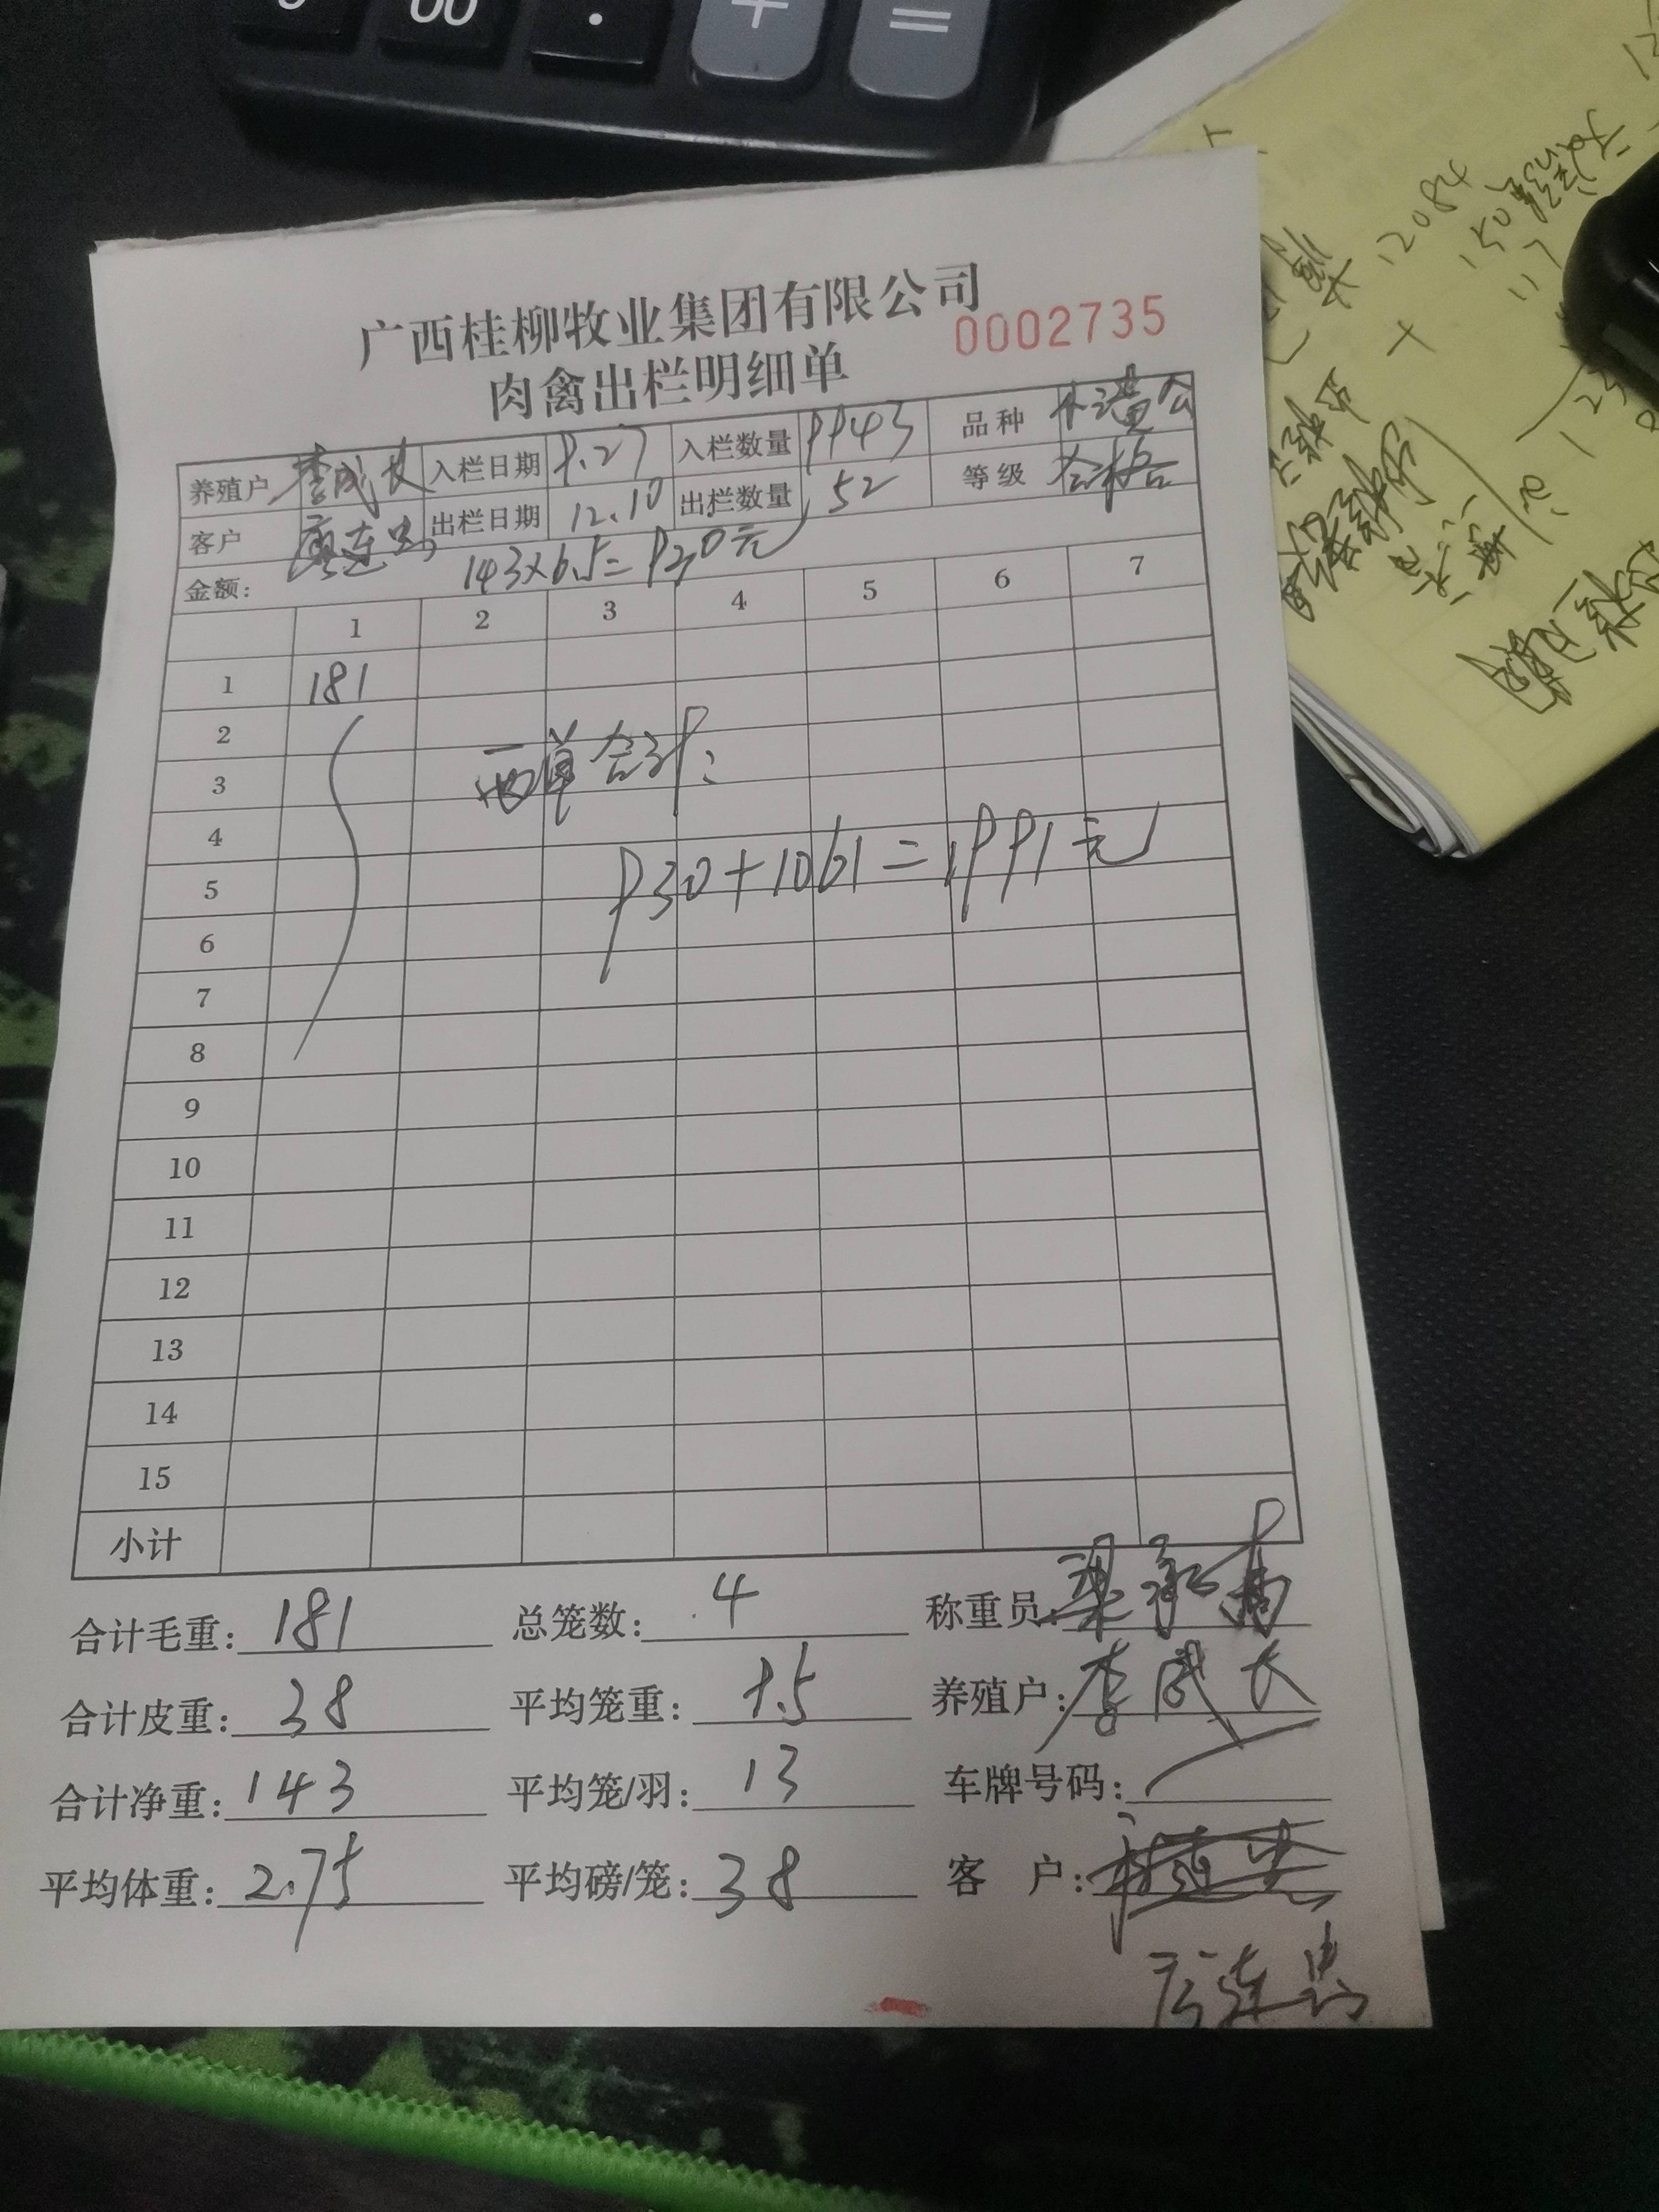 00 .
+ =
广西桂柳牧业集团有限公司
0002735
肉禽出栏明细单
养殖户 李成长 入栏日期 9.27 入栏数量 9943 品种
客户 廖连忠 出栏日期 12.10 出栏数量 52 等级 合格
金额: 143×6.5=930元
1 2 3 4 5 6 7
1 181
2
两单合计:
3
4
930+1061=1991元
5
6
7
8
9
10
11
12
13
14
15
小计
合计毛重: 181 总笼数: 4 称重员: 梁
合计皮重: 38 平均笼重: 9.5 养殖户: 李成长
合计净重: 143 平均笼/羽: 13 车牌号码:
平均体重: 2.75 平均磅/笼: 38 客 户:
廖连忠
12084
150